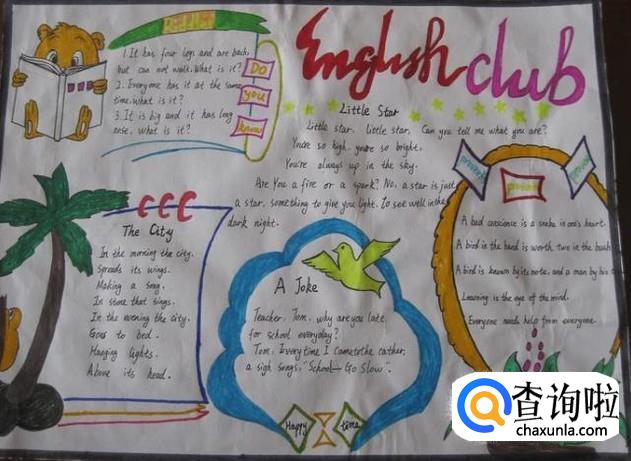 English club
1. It has four legs and are back,
but can not walk. What is it?
2. Everyone has it at the same
time. What is it?
3. It is big and it has long
What is it?
Do
you
know
Little Star
Little star, little star, Can you tell me what you are?
You're so high, you're so bright,
You're always up in the sky.
Are You a fire or a spark? No, a star is just
a star, something to give you light. To see well in the
dark night.
The City
In the morning the city.
Spreads its wings.
Making a song.
In stone that sings.
In the evening the city.
Goes to bed.
Hanging lights.
Above its head.
A Joke
Teacher: Tom, why are you late
for school everyday?
Tom: Every time I come to the
a sigh songs, "School— Go Slow".
Happy time
proverb
proverb
proverb
A bad conscience is a snake in one's heart.
A bird in the hand is worth two in the bush
A bird is known by its note, and a man by his
Learning is the eye of the mind.
Everyone needs help from everyone.
查询啦
chaxunla.com